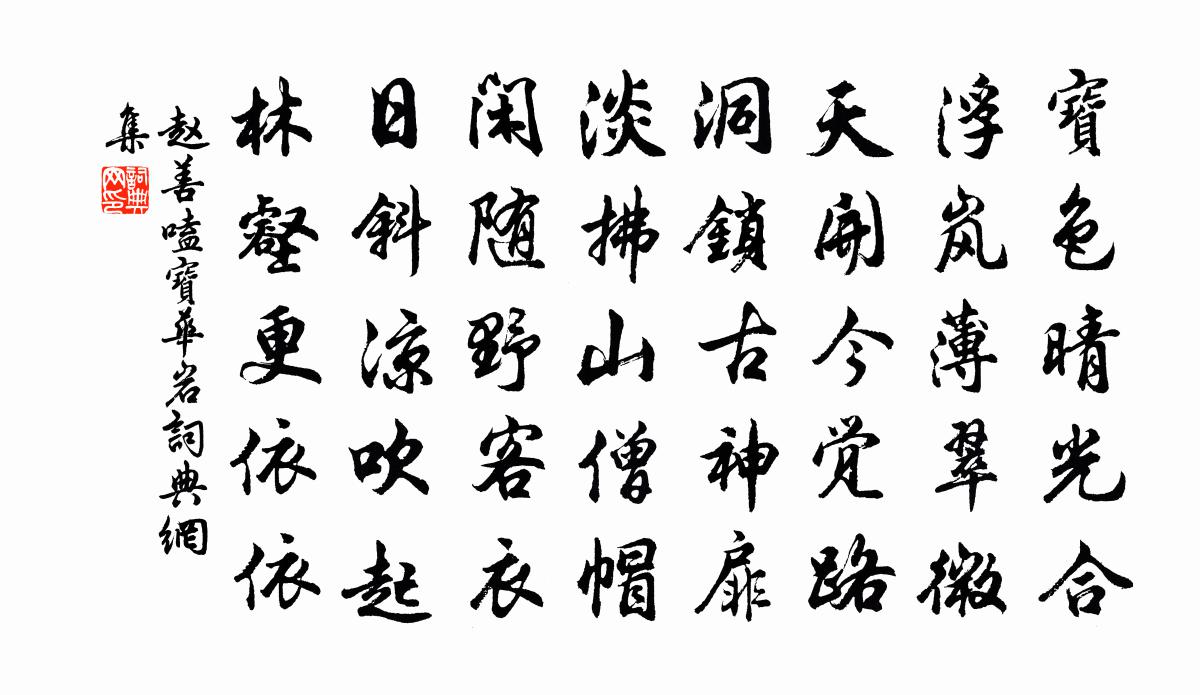 寶色晴光合
浮岚薄翠微
天開今觉路
洞鎖古神扉
淡拂山僧帽
闲随野客衣
日斜凉吹起
林壑更依依
赵善嗑寶華岩詞典網
集
詞典
网印